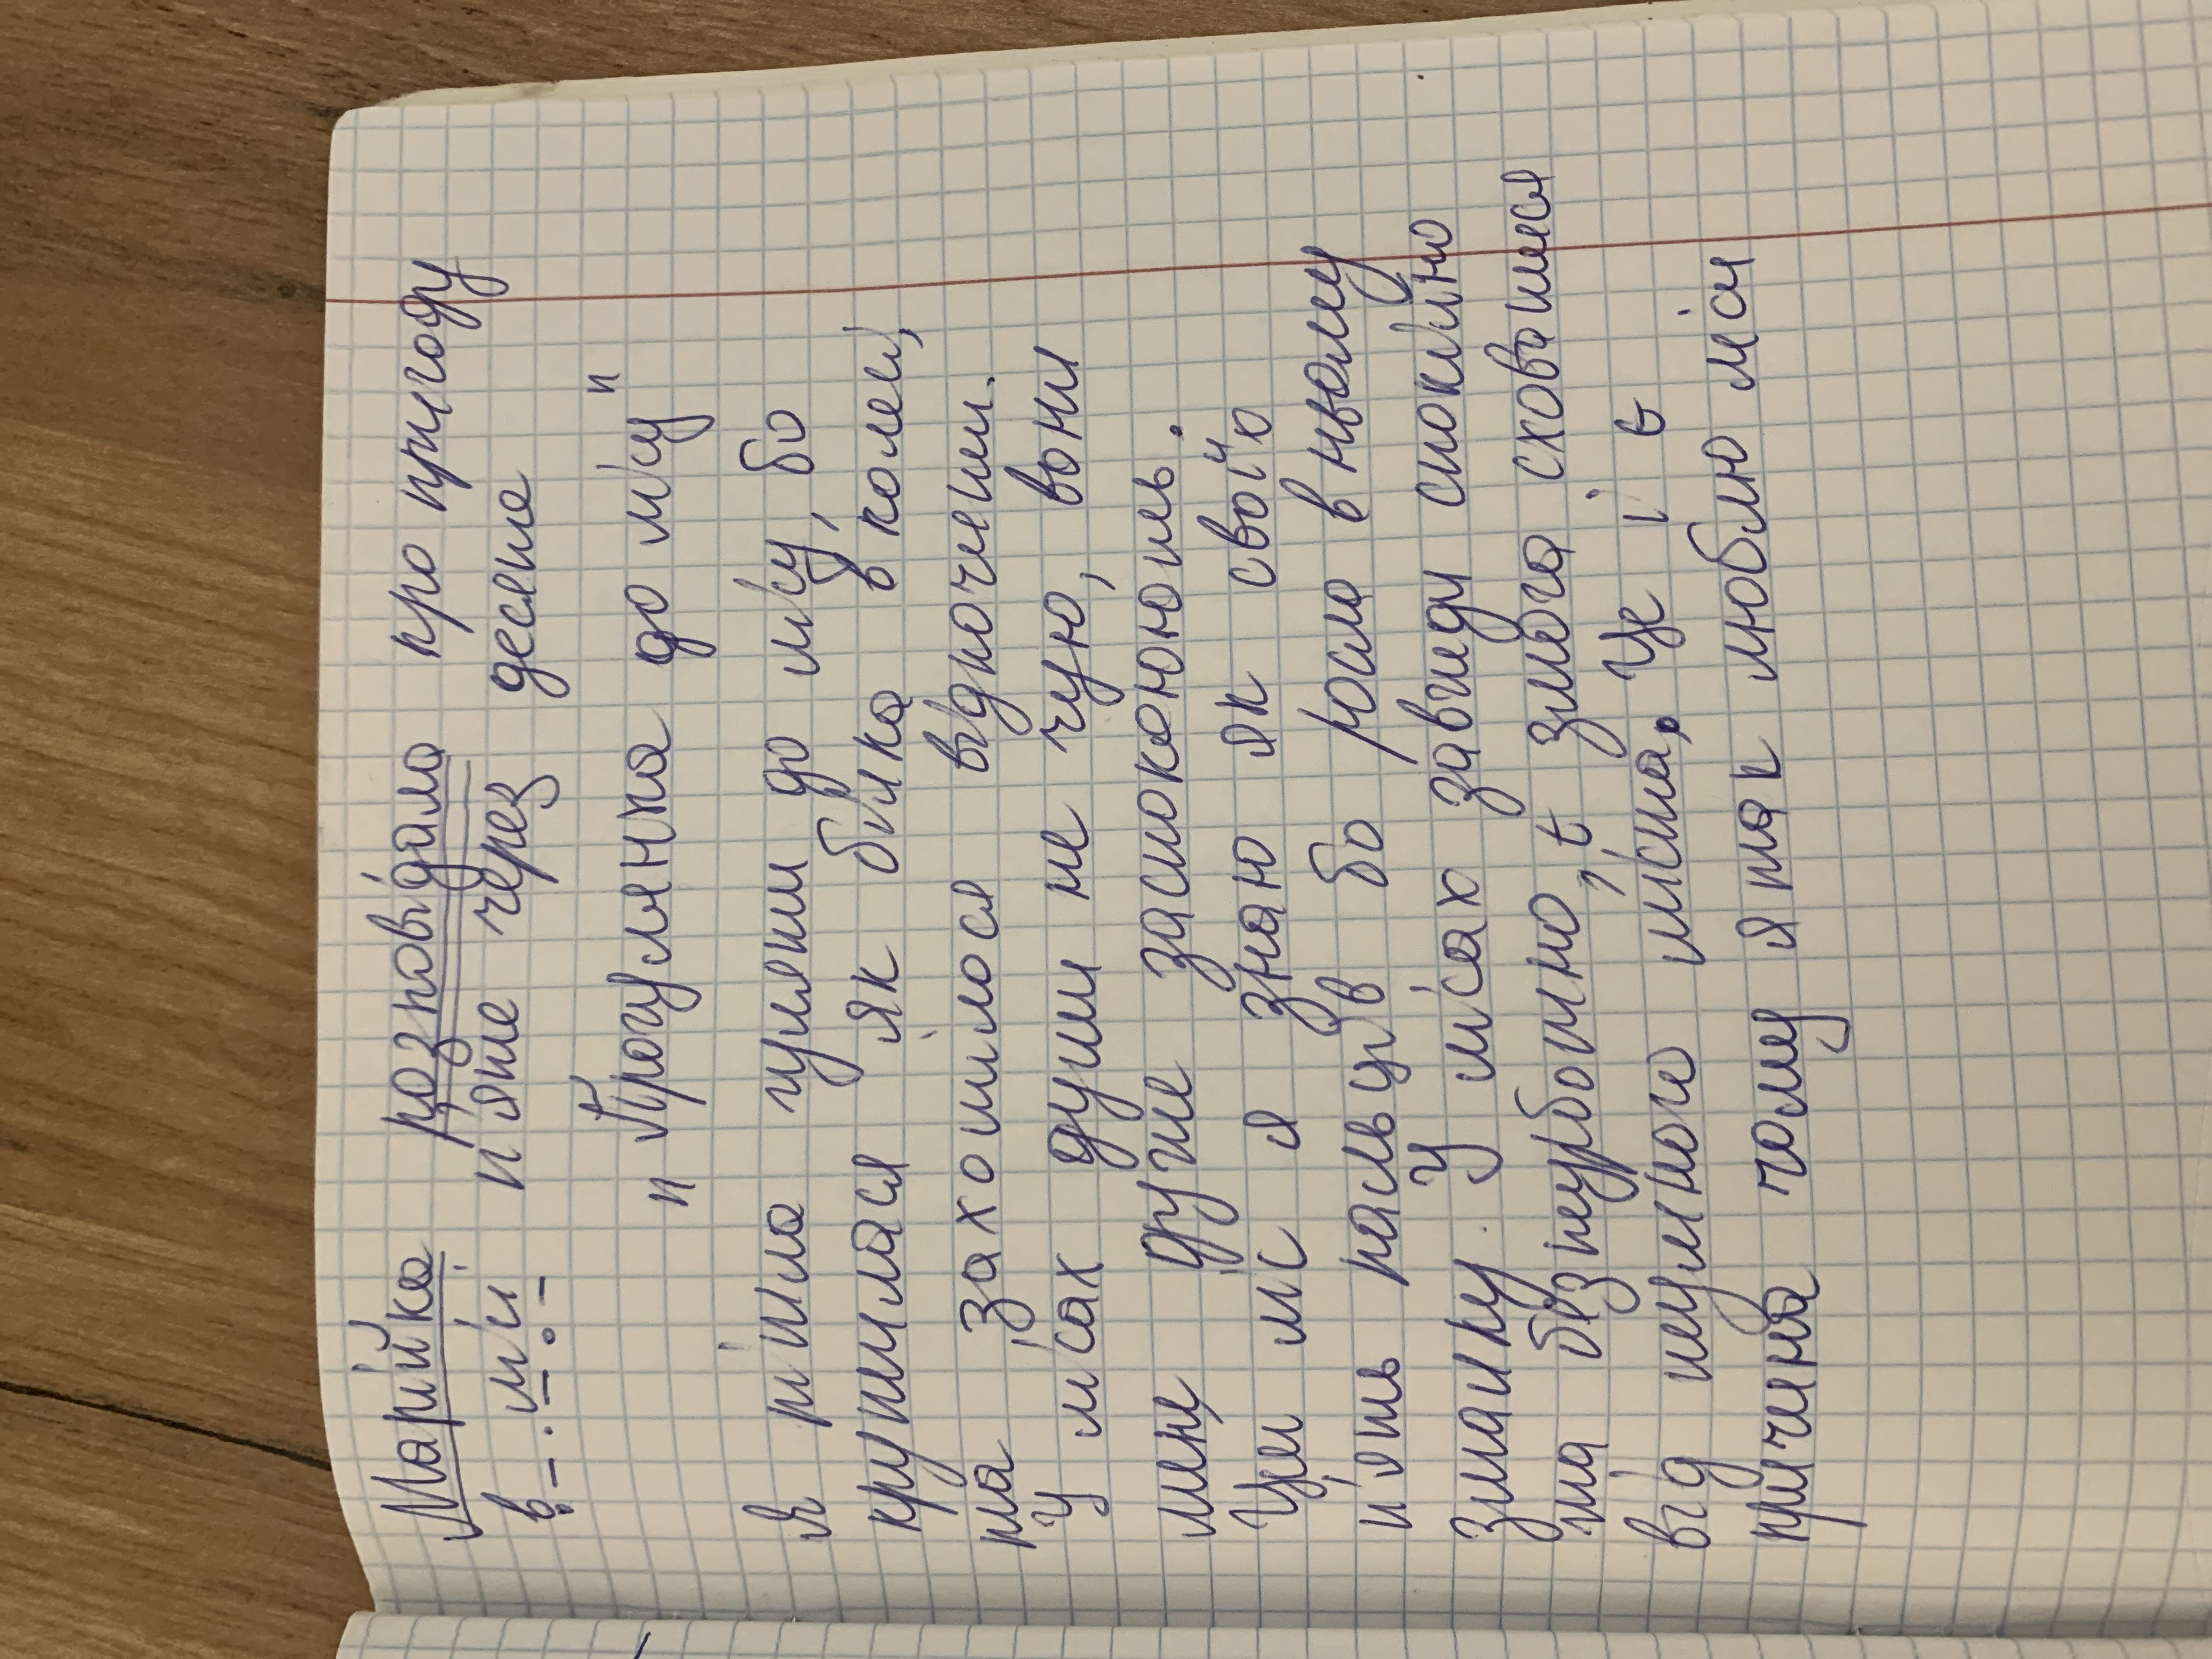 Марійка розповідала про пригоду
в лісі п'яте через десяте
"Прогулянка до лісу"
Я пішла гуляти до лісу, бо
крутилася як білка в колесі,
та захотілося відпочити.
У лісах думи не чую, вони
мене заспокоюють.
Цей ліс я знаю як свої
п'ять пальців бо росла в ньому
змалку. У лісах завжди спокійно
та безтурботно, є змога сховатися
від шумного міста. Це і є
причина чому я так люблю ліси